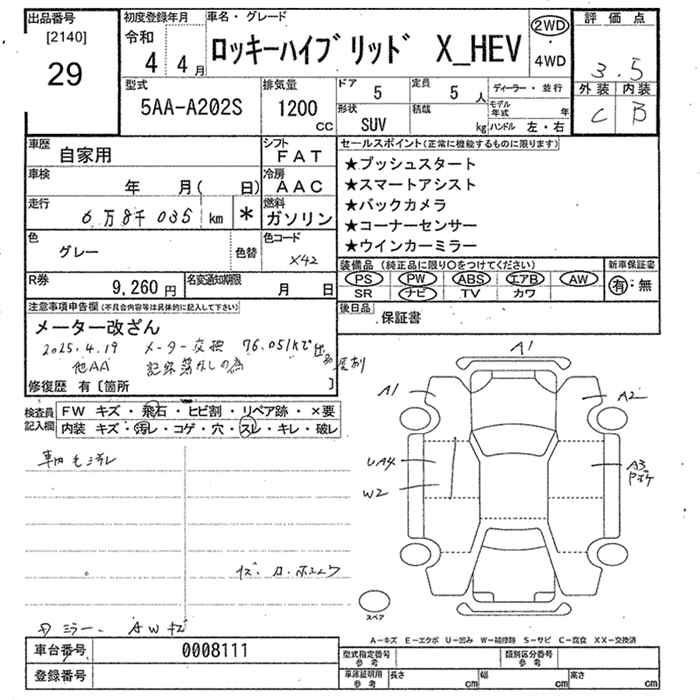 出品番号
[2140]
29
初度登録年月
令和
4 4月
車名・グレード
ロッキーハイブリッド X_HEV
2WD
・
4WD
評価点
3.5
外装 内装
C B
型式
5AA-A202S
排気量
1200
cc
ドア
5
定員
5 人
形状
SUV
積載
kg
ディーラー・並行
モデル年式 年
ハンドル 左・右
車歴
自家用
シフト
FAT
車検
年 月( 日)
冷房
AAC
走行
6万8千035 km
*
燃料
ガソリン
色
グレー
色替
色コード
X42
R券
9,260 円
名変通知期限
月 日
セールスポイント(正常に機能するものに限ります)
★プッシュスタート
★スマートアシスト
★バックカメラ
★コーナーセンサー
★ウインカーミラー
装備品 (純正品に限り〇をつけてください)
PS PW ABS エアB AW
SR ナビ TV カワ
新車保証書
有・無
後日品
保証書
注意事項申告欄(不具合内容等は具体的に記入して下さい)
メーター改ざん
2025.4.19 メーター交換 76.051kで
他AA 記録簿なしの為
修復歴 有〔箇所 〕
検査員記入欄
FW キズ・飛石・ヒビ割・リペア跡・×要
内装 キズ・汚レ・コゲ・穴・スレ・キレ・破レ
A1
A1
A2
UA4
W2
A3
スペア
ミラー AWキズ
A-キズ E-エクボ U-凹み W-補修跡 S-サビ C-腐食 XX-交換済
車台番号
0008111
登録番号
型式指定番号
参考
類別区分番号
参考
車庫証明用
参考
長さ cm
幅 cm
高さ cm